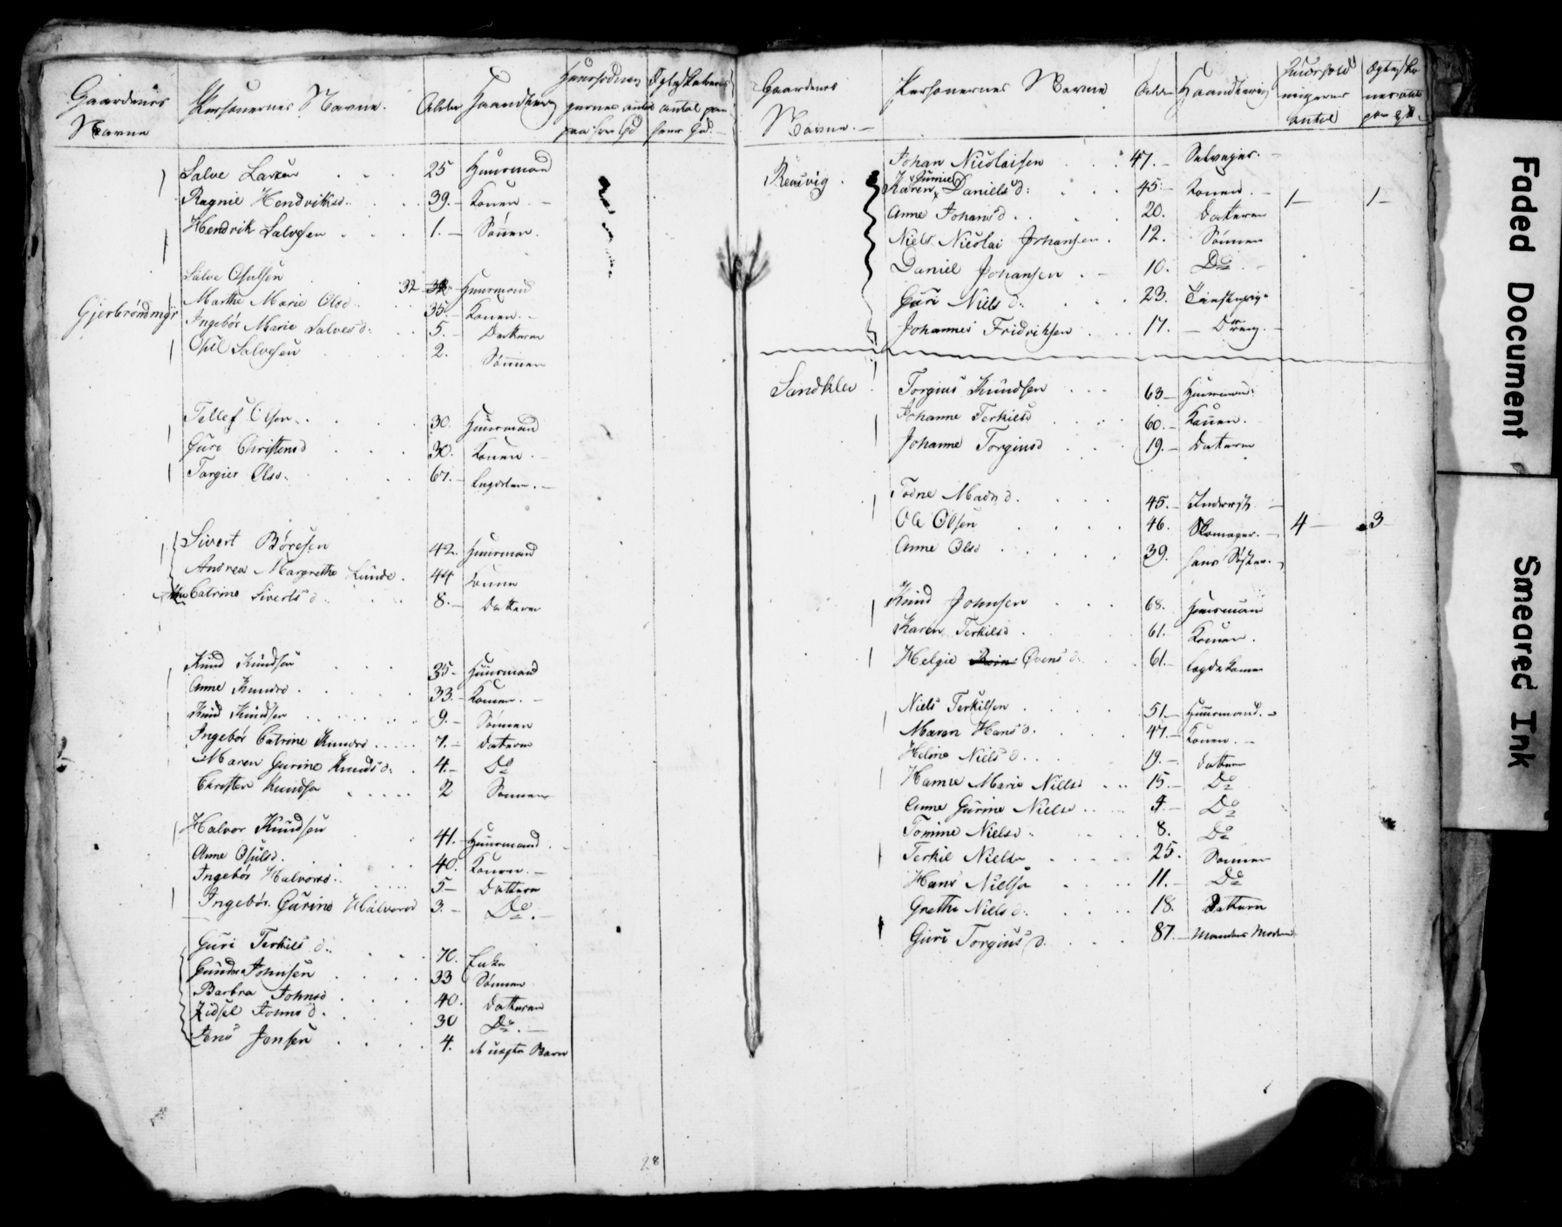 Gaardenes Navne
Personernes Navne.
Alder
Haandtering
Salve Larsen 25 Huusmand
Ragnie Hendriksd. 39. Konen
Hendrik Salvesen 1. Sönnen
Gjerbröndmyr
Salve Osulsen 32 Huusmand
Marthe Marie Olsd. 35. Konen
Ingebör Marie Salvesd. 5. Datteren
Osul Salvesen 2. Sönnen
Tellef Olsen 30. Huusmand
Guri Christensd 30. Konen
Torgier Olsd. 67.
Sivert Böresen 42. Huusmand
Andrea Margrethe Lunde. 44 Konen
Catrine Sivertsd. 8. Datteren
Knud Knudsen 35 Huusmand
Anne Knudsd. 33. Konen
Knud Knudsen 9. Sönnen
Ingebör Catrine Knudsd 7. Datteren
Maren Gurine Knudsd. 4. Do
Christen Knudsen 2 Sönnen
Halvor Knudsen 41. Huusmand
Anne Osulsd. 40. Konen
Ingebör Halvorsd. 5 Datteren
Ingebör Gurine Halvorsd 3. Do
Guri Terkilsd. 70. Enke
Gunder Johnsen 33 Sönnen
Barbra Johnsd 40. Datteren
Zidsel Johnsd. 30 Do.
Jens Jensen 4. et uægte Barn
28
Gaardenes Navne.
Personernes Navne
Alder
Haandtering
antal
Revsvig.
Johan Nicolaisen 47. Selveyer.
Karen Gunnild Danielsd. 45. Konen. 1 1
Anne Johansd. 20. Datteren
Niels Nicolai Johansen. 12. Sönnen
Daniel Johansen 10. Do
Guri Nielsd. 23. Tienstepige
Johannes Fridriksen 17. Dreng.
Sandklev
Torgius Knudsen 63 Huusmand
Johanne Terkilsd 60. Konen.
Johanne Torgiusd 19. Datteren
Tone Madsd. 45. Inderst
Ole Olsen 46. Skomager. 4 3
Anne Olsd 39. hans Söster.
Knud Johnsen 68. Huusmand
Karen Terkilsd. 61. Konen.
Helgie Övensd. 61. Lægdskone
Niels Terkilsen 51. Huusmand.
Maren Hansd. 47. Konen.
Heline Nielsd. 19. Datteren
Hanne Marie Nielsd 15. Do
Anne Gurine Nielsd 4. Do
Tomine Nielsd. 8. Do
Terkil Nielsen 25. Sönnen
Hans Nielsen 11. Do
Grethe Nielsd. 18. Datteren
Guri Torgiusd. 87. Mandens Moder
Faded Document
Smeared Ink